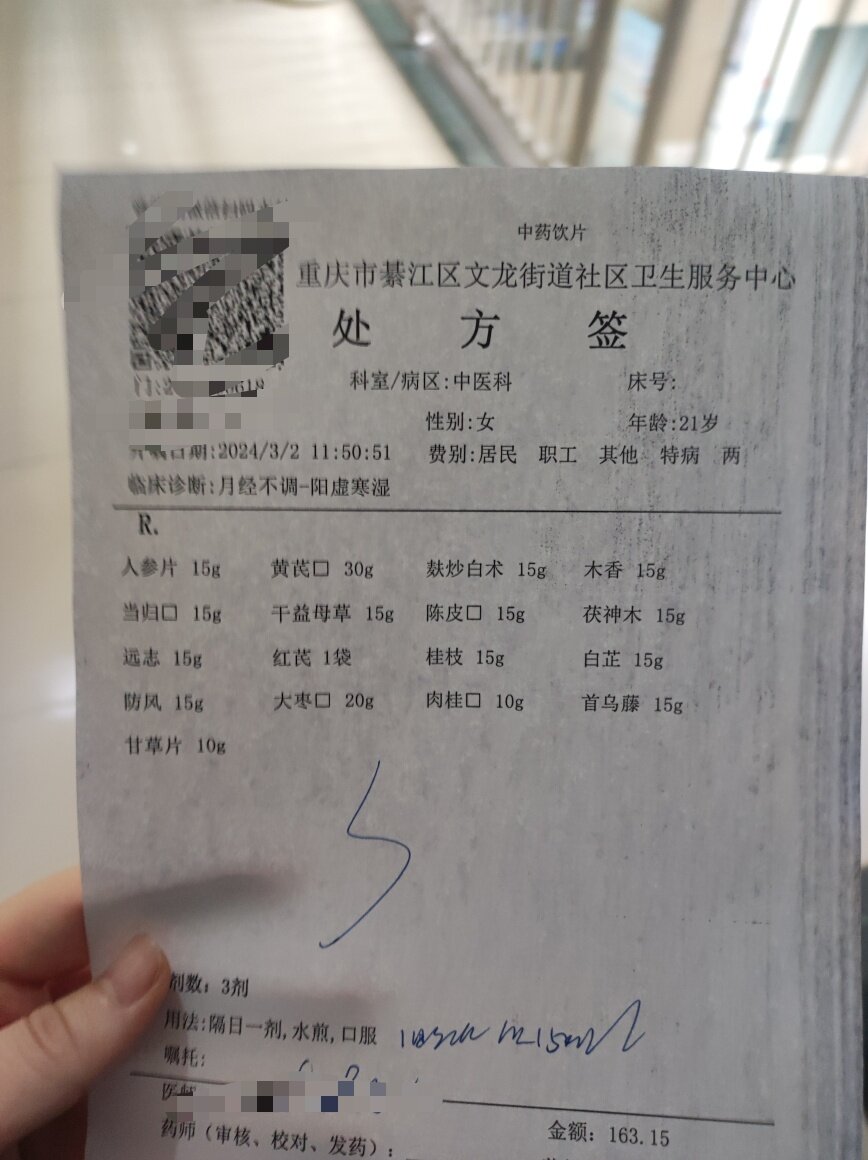 中药饮片
重庆市綦江区文龙街道社区卫生服务中心
处 方 签
科室/病区:中医科 床号:
性别:女 年龄:21岁
日期:2024/3/2 11:50:51 费别:居民 职工 其他 特病 两
临床诊断:月经不调-阳虚寒湿
R.
人参片 15g 黄芪□ 30g 麸炒白术 15g 木香 15g
当归□ 15g 干益母草 15g 陈皮□ 15g 茯神木 15g
远志 15g 红芪 1袋 桂枝 15g 白芷 15g
防风 15g 大枣□ 20g 肉桂□ 10g 首乌藤 15g
甘草片 10g
剂数: 3剂
用法:隔日一剂,水煎,口服
嘱托:
医师
药师（审核、校对、发药）:
金额: 163.15